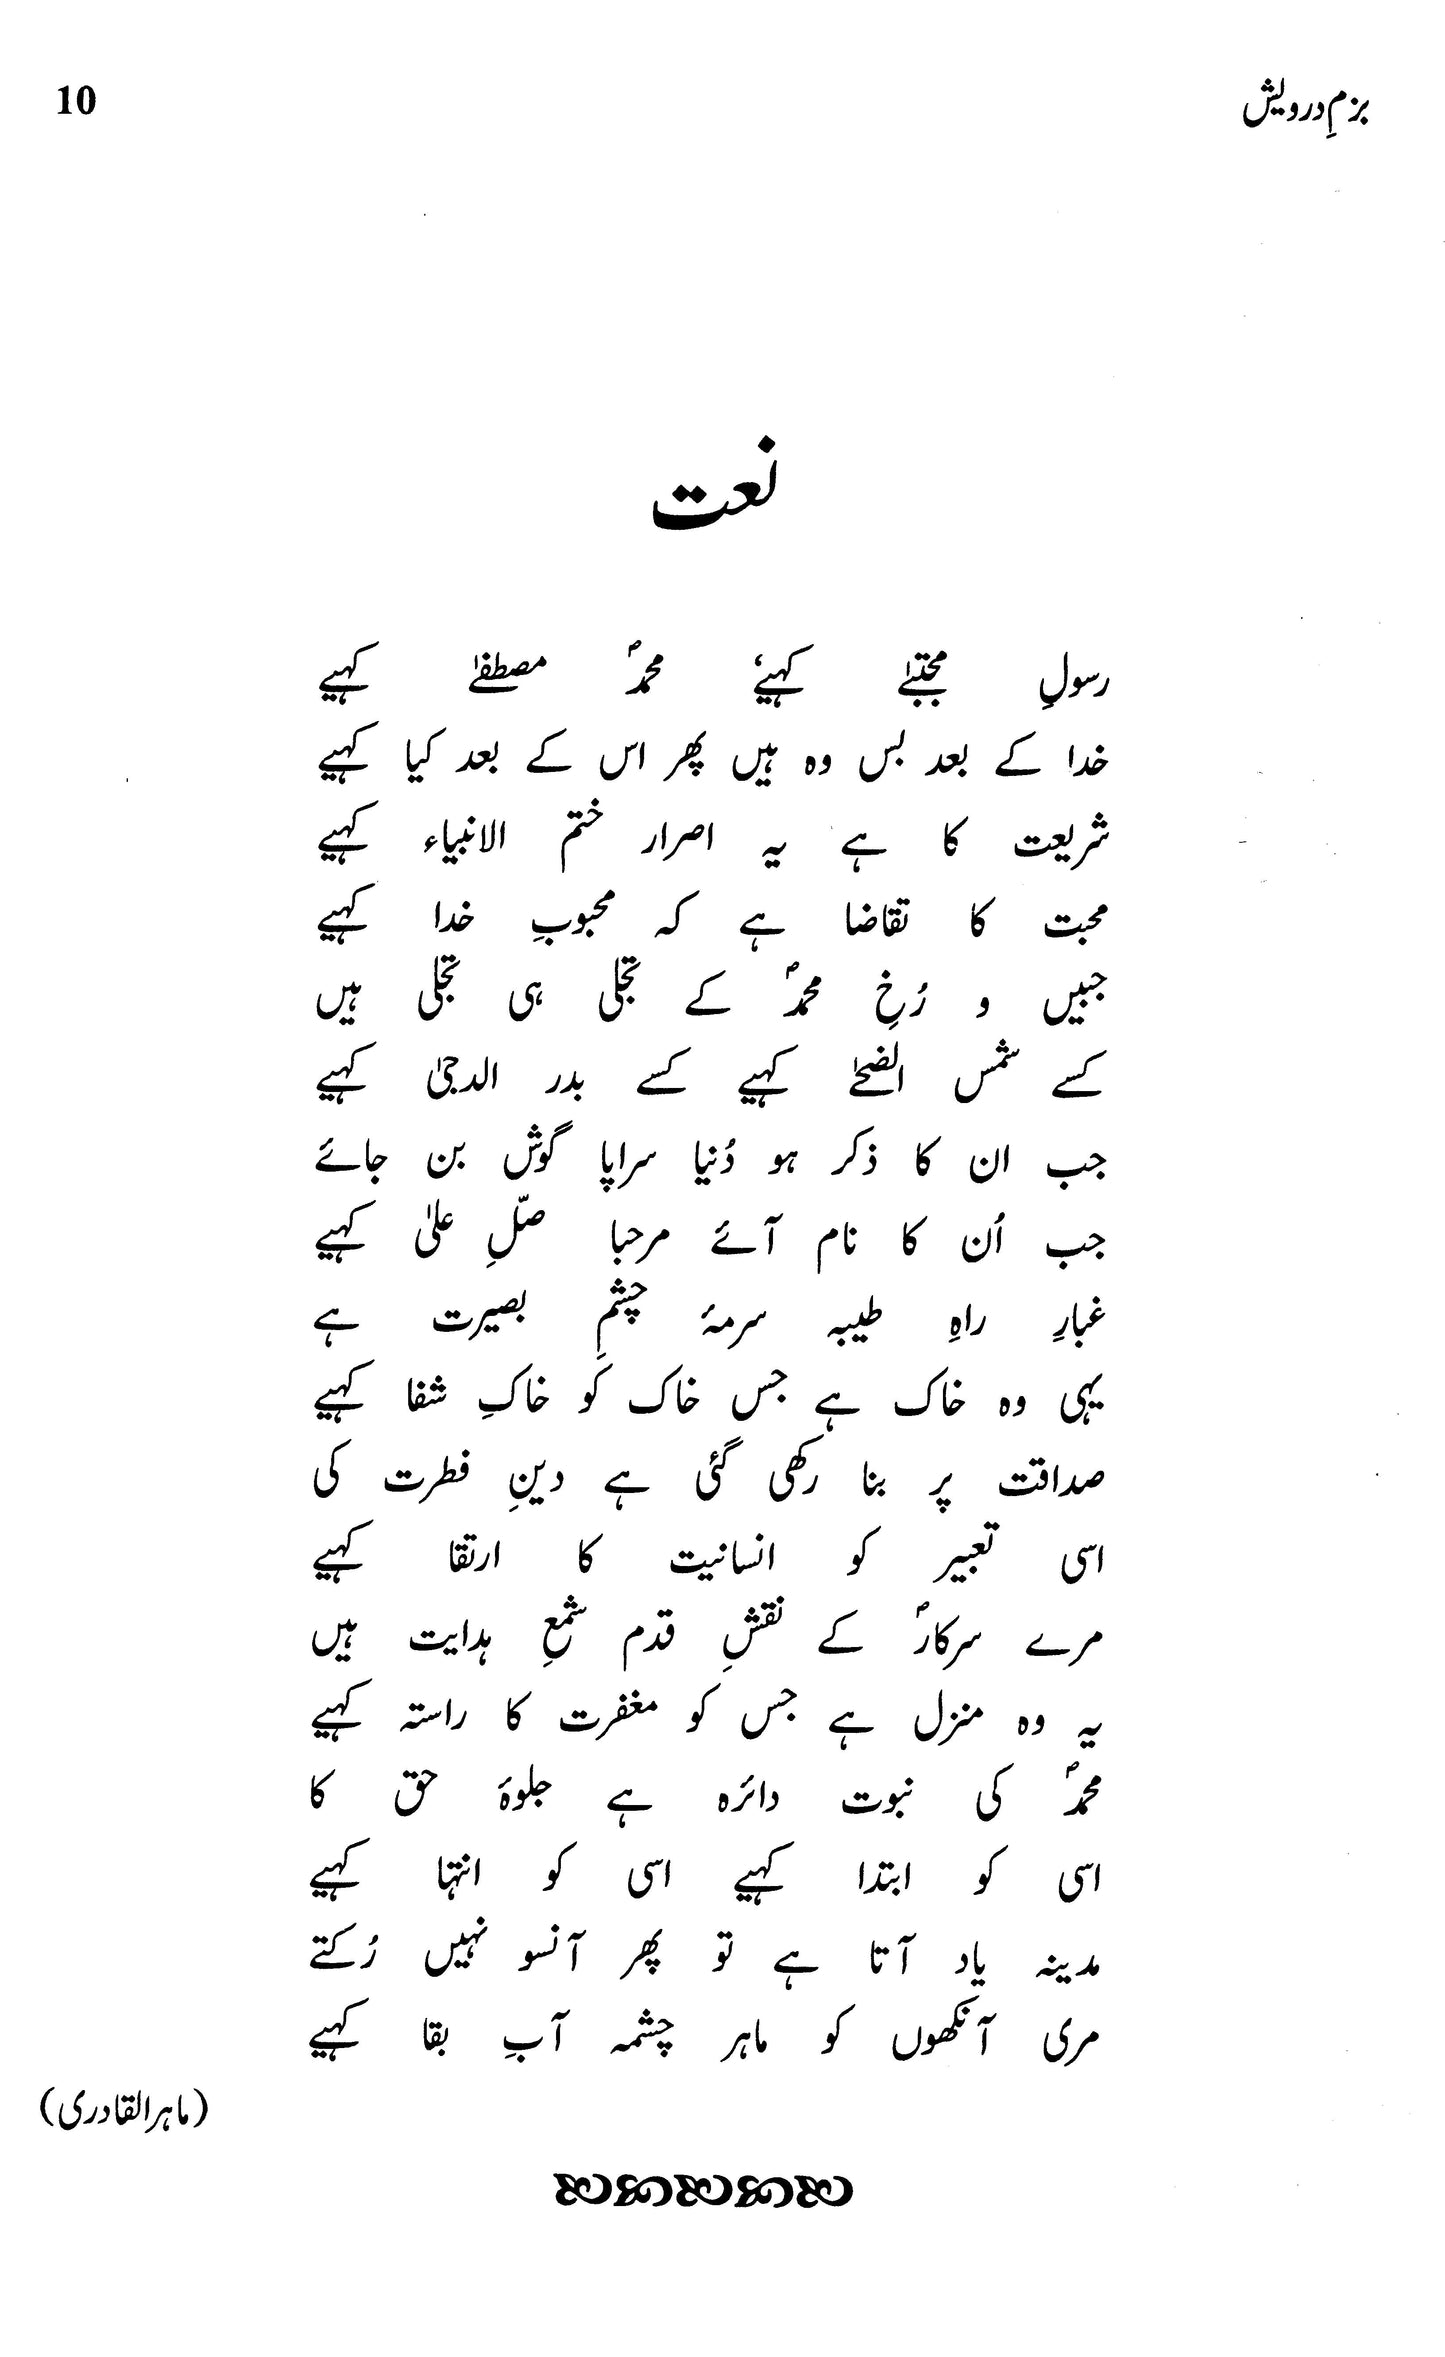 بزمِ درویش
10
نعت
رسولِ مجتبےٰ کہیے، محمدؐ مصطفےٰ کہیے
خدا کے بعد بس وہ ہیں پھر اس کے بعد کیا کہیے
شریعت کا ہے یہ اصرار ختم الانبیاء کہیے
محبت کا تقاضا ہے کہ محبوبِ خدا کہیے
جبیں و رُخِ محمدؐ کے تجلی ہی تجلی ہیں
کسے شمس الضحےٰ کہیے کسے بدر الدجیٰ کہیے
جب ان کا ذکر ہو دُنیا سراپا گوش بن جائے
جب اُن کا نام آئے مرحبا صلِّ علیٰ کہیے
غبارِ راہِ طیبہ سرمۂ چشمِ بصیرت ہے
یہی وہ خاک ہے جس خاک کو خاکِ شفا کہیے
صداقت پر بنا رکھی گئی ہے دینِ فطرت کی
اسی تعبیر کو انسانیت کا ارتقا کہیے
مرے سرکارؐ کے نقشِ قدم شمعِ ہدایت ہیں
یہ وہ منزل ہے جس کو مغفرت کا راستہ کہیے
محمدؐ کی نبوت دائرہ ہے جلوۂ حق کا
اسی کو ابتدا کہیے اسی کو انتہا کہیے
مدینہ یاد آتا ہے تو پھر آنسو نہیں رُکتے
مری آنکھوں کو ماہر چشمہ آبِ بقا کہیے
(ماہر القادری)